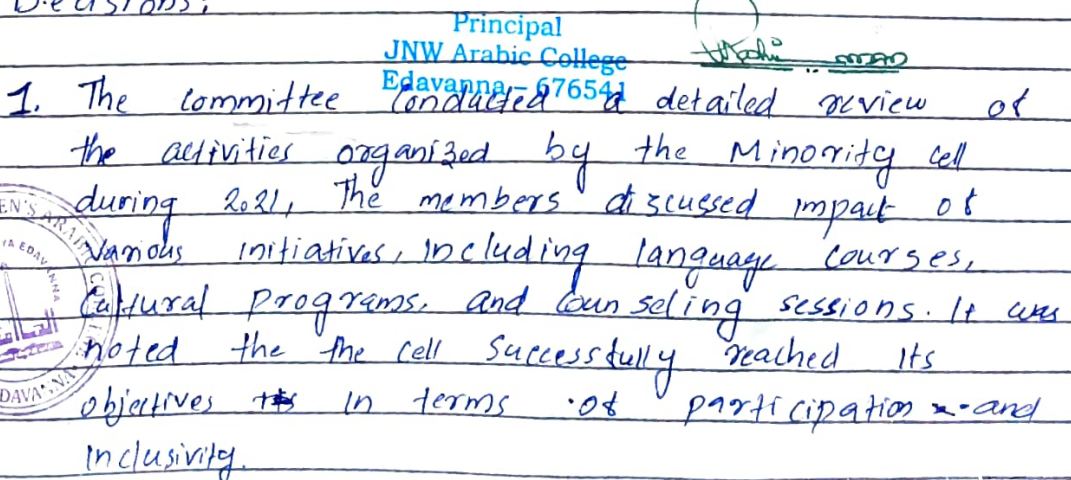 Decisions:
Principal
JNW Arabic College
Edavanna - 676541
1. The Committee Conducted a detailed review of
the activities organized by the Minority Cell
during 2021, The members discussed impact of
Various initiatives, including language courses,
Cultural programs, and Counseling sessions. It was
noted the the cell Successfully reached its
objectives in terms of participation and
inclusivity.
EN'S ARABIC COLLE
YA EDAVANNA
EDAVANNA